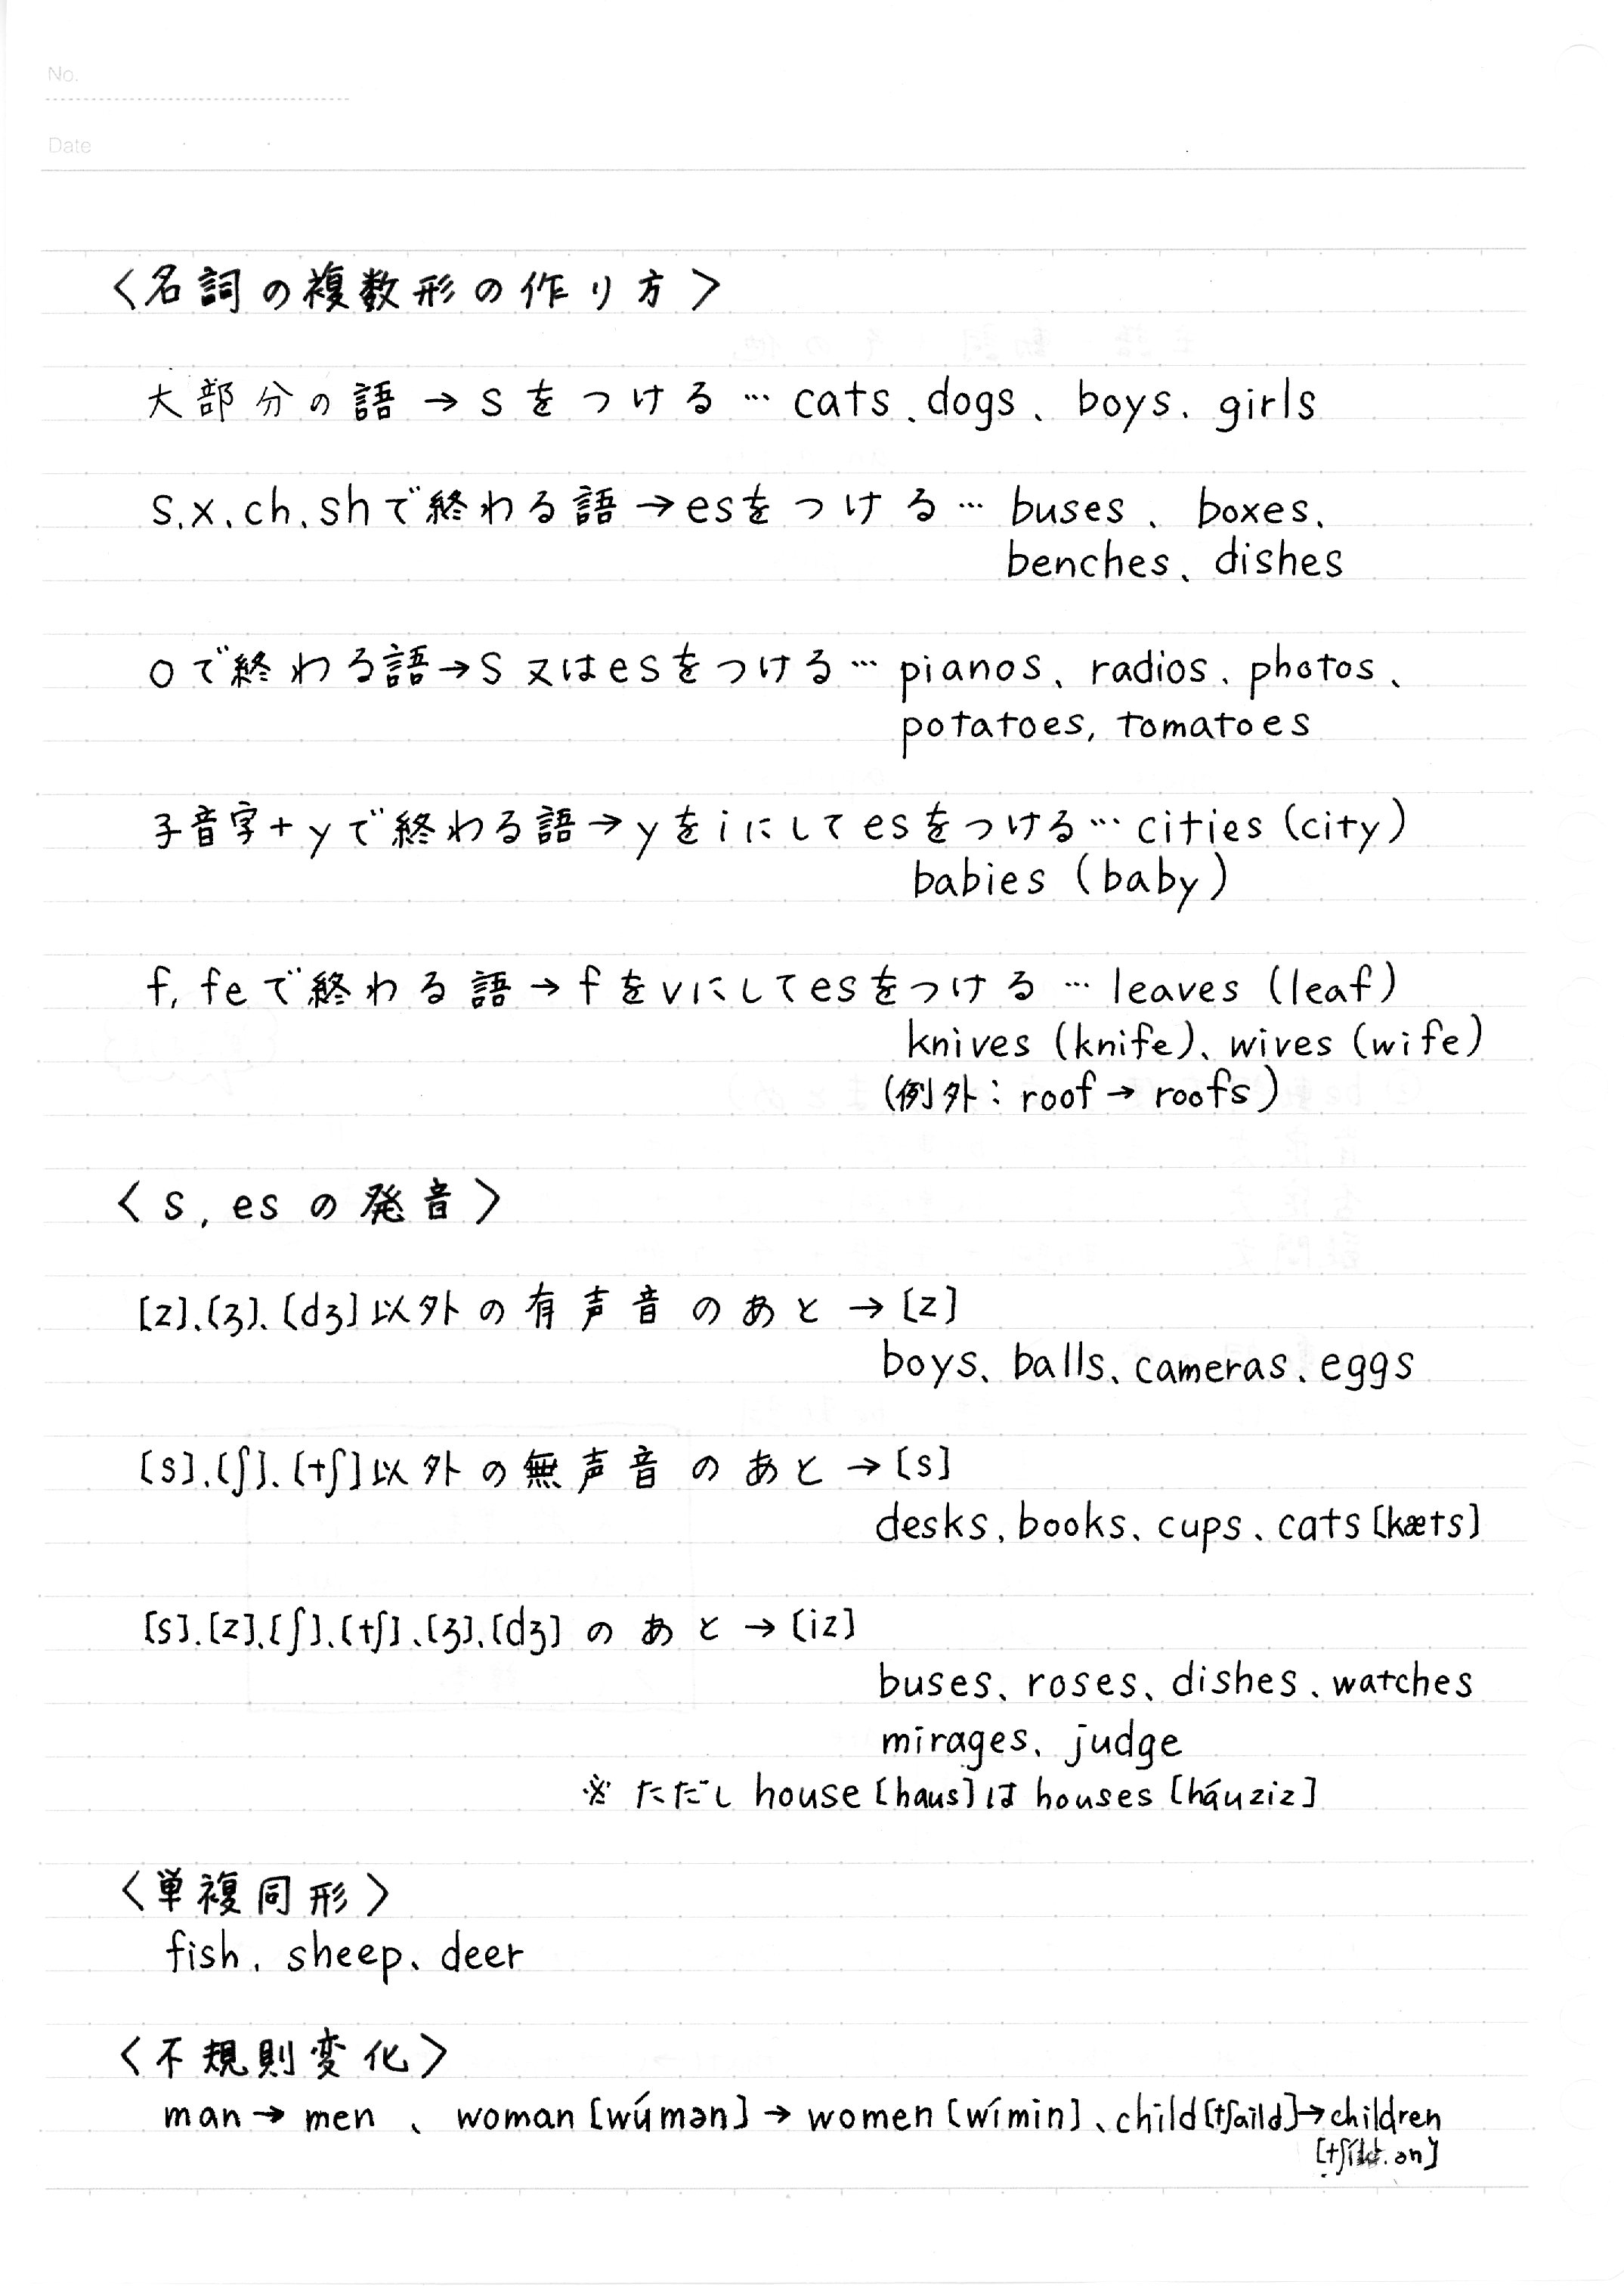 No.
Date
〈名詞の複数形の作り方〉
大部分の語→sをつける…cats、dogs、boys、girls
s、x、ch、shで終わる語→esをつける…buses、boxes、
benches、dishes
oで終わる語→s又はesをつける…pianos、radios、photos、
potatoes, tomatoes
子音字+yで終わる語→yをiにしてesをつける…cities (city)
babies (baby)
f, feで終わる語→fをvにしてesをつける…leaves (leaf)
knives (knife)、wives (wife)
(例外:roof→roofs)
〈s, esの発音〉
[z]、[ʒ]、[dʒ]以外の有声音のあと→[z]
boys、balls、cameras、eggs
[s]、[ʃ]、[tʃ]以外の無声音のあと→[s]
desks、books、cups、cats [kæts]
[s]、[z]、[ʃ]、[tʃ]、[ʒ]、[dʒ]のあと→[iz]
buses、roses、dishes、watches
mirages、judge
※ただしhouse [haus]はhouses [háuziz]
〈単複同形〉
fish、sheep、deer
〈不規則変化〉
man→men、woman [wúmən]→women [wímin]、child [tʃaild]→children